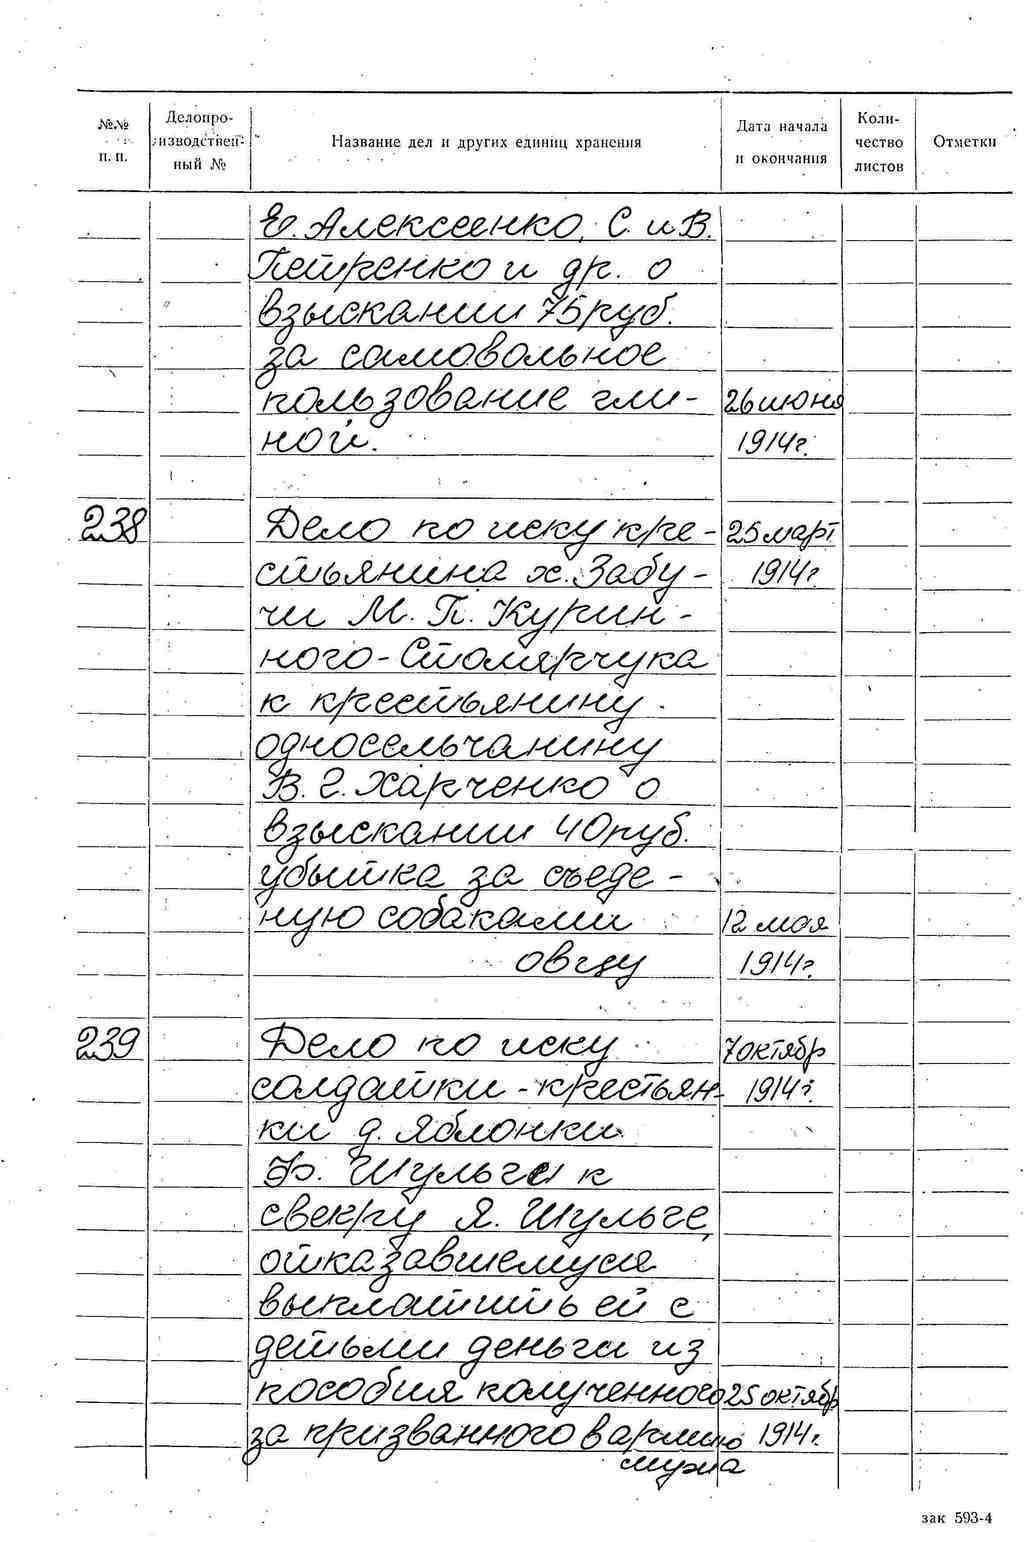 №№ п. п.
Делопро-
изводствен-
ный №
Название дел и других единиц хранения
Дата начала
и окончания
Коли-
чество
листов
Отметки
Е. Алексеенко, С. и В.
Петренко и др. о
взыскании 75 руб.
за самовольное
пользование гли- 26 июня
ной. 1914г.
238 Дело по иску кре- 25 март
стьянина х. Забу- 1914г
чи М. П. Курин-
ного-Столярчука
к крестьянину
односельчанину
В. Г. Харченко о
взыскании 40 руб.
убытка за съеде-
ную собаками 12 мая
овцу 1914г.
239 Дело по иску 7 октябр
солдатки-крестьян- 1914г.
ки д. Яблонки
Ф. Шульги к
свекру Я. Шульге,
отказавшемуся
выплатить ей с
детьми деньги из
пособия полученного 25 октябр
за призванного в армию 1914г.
мужа
зак 593-4